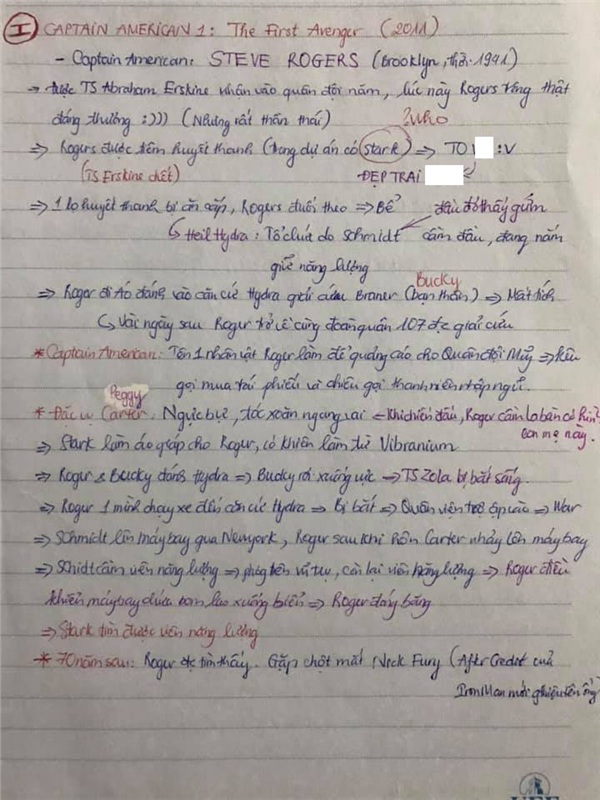 I CAPTAIN AMERICAN 1: The First Avenger (2011)
- Captain American: STEVE ROGERS (Brooklyn, 1941)
→ Được TS Abraham Erskine nhận vào quân đội năm, lúc này Rogers trông thật
đáng thương :))) (Nhưng rất thần thái)
?Who
⇒ Rogers được tiêm huyết thanh (trong dự án có Stark) ⇒ TO :V
(TS Erskine chết) ĐẸP TRAI
⇒ 1 lọ huyết thanh bị ăn cắp, Rogers đuổi theo ⇒ Bể đầu đỏ thấy gớm
↳ Heil Hydra: Tổ chức do Schmidt cầm đầu, đang nắm
giữ năng lượng
Bucky
⇒ Roger đi Áo đánh vào căn cứ Hydra giải cứu (bạn thân) ⇒ Mất tích
↳ Vài ngày sau Roger trở về cùng đoàn quân 107 đc giải cứu
*Captain American: Tên 1 nhân vật Roger làm để quảng cáo cho Quân đội Mỹ ⇒ kêu
gọi mua trái phiếu và chiêu gọi thanh niên nhập ngũ.
Peggy
* Đặc vụ Carter: Ngực bự, tóc xoăn ngang vai ← Khi chiến đấu, Roger cầm la bàn có hình
con mẹ này.
⇒ Stark làm áo giáp cho Roger, có khiên làm từ Vibranium
⇒ Roger & Bucky đánh Hydra ⇒ Bucky rơi xuống vực → TS Zola bị bắt sống.
⇒ Roger 1 mình chạy xe đến căn cứ Hydra ⇒ Bị bắt ⇒ Quân viện trợ ập vào ⇒ War
⇒ Schmidt lên máy bay qua Newyork, Roger sau khi hôn Carter nhảy lên máy bay
⇒ Schidt cầm viên năng lượng ⇒ phóng lên vũ trụ, còn lại viên năng lượng ⇒ Roger điều
khiển máy bay chứa bom lao xuống biển ⇒ Roger đóng băng
⇒ Stark tìm được viên năng lượng
* 70 năm sau: Roger đc tìm thấy. Gặp chột mắt Nick Fury (After Credit của
IronMan mới ghi tên ổng